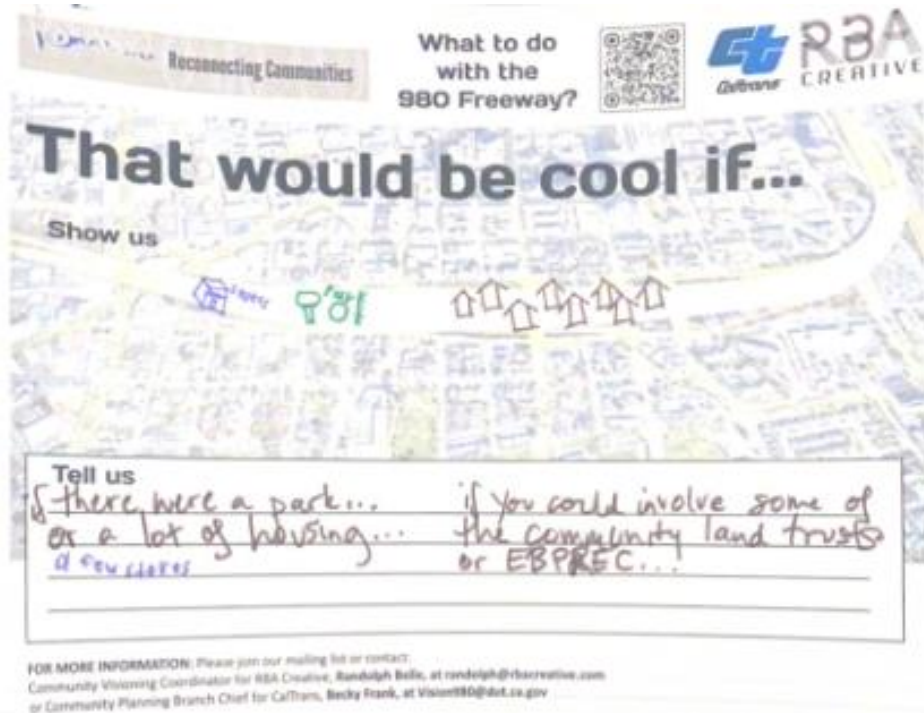 Reconnecting Communities
What to do
with the
980 Freeway?
Caltrans
RBA
CREATIVE
That would be cool if...
Show us
Tell us
if there were a park...
or a lot of housing...
a few stores
if you could involve some of
the community land trusts
or EBPREC...
FOR MORE INFORMATION: Please join our mailing list or contact:
Community Visioning Coordinator for RBA Creative, Randolph Belle, at randolph@rbacreative.com
or Community Planning Branch Chief for CalTrans, Becky Frank, at Vision980@dot.ca.gov